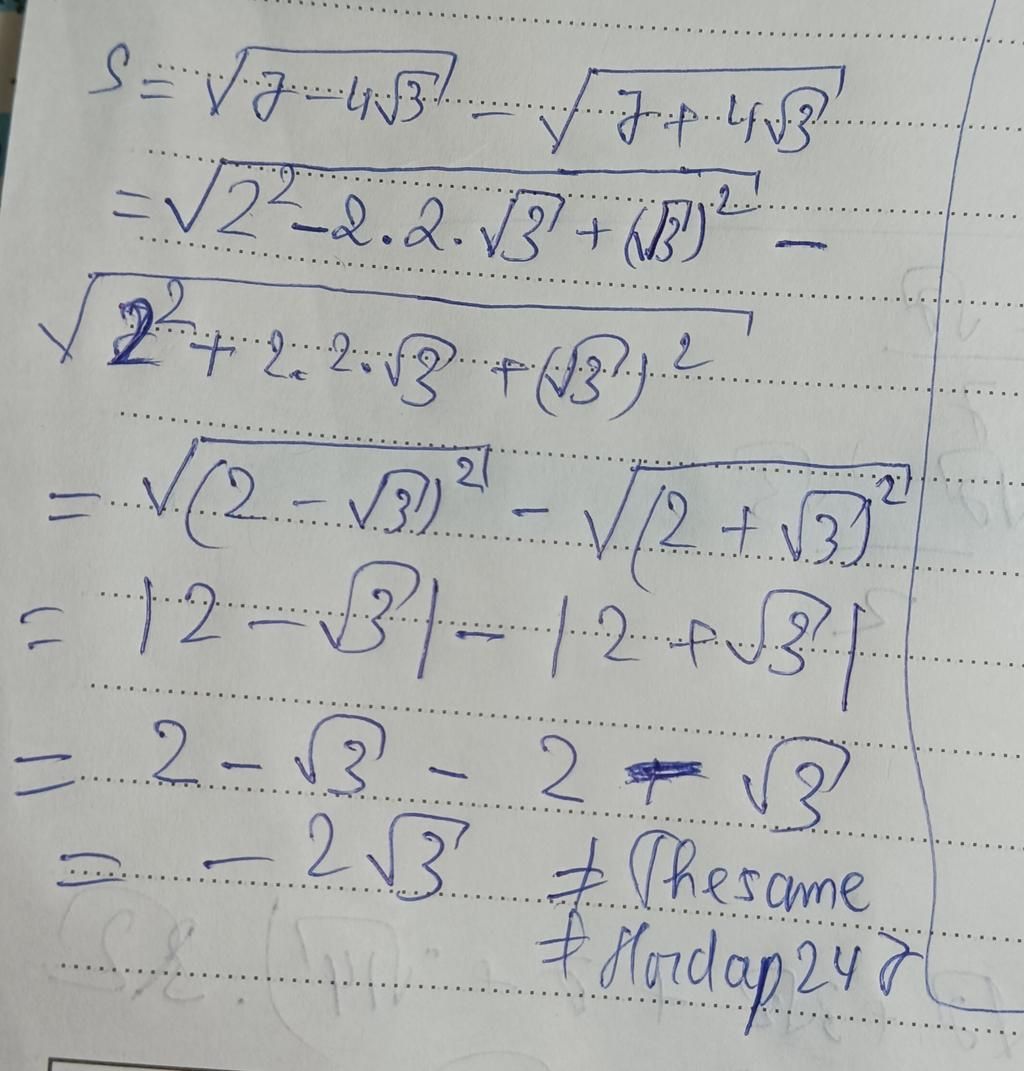 S = √(7 - 4√3) - √(7 + 4√3)
= √(2² - 2.2.√3 + (√3)²) -
√(2² + 2.2.√3 + (√3)²)
= √((2 - √3)²) - √((2 + √3)²)
= |2 - √3| - |2 + √3|
= 2 - √3 - 2 - √3
= - 2√3 # Thesame
# Hoidap247